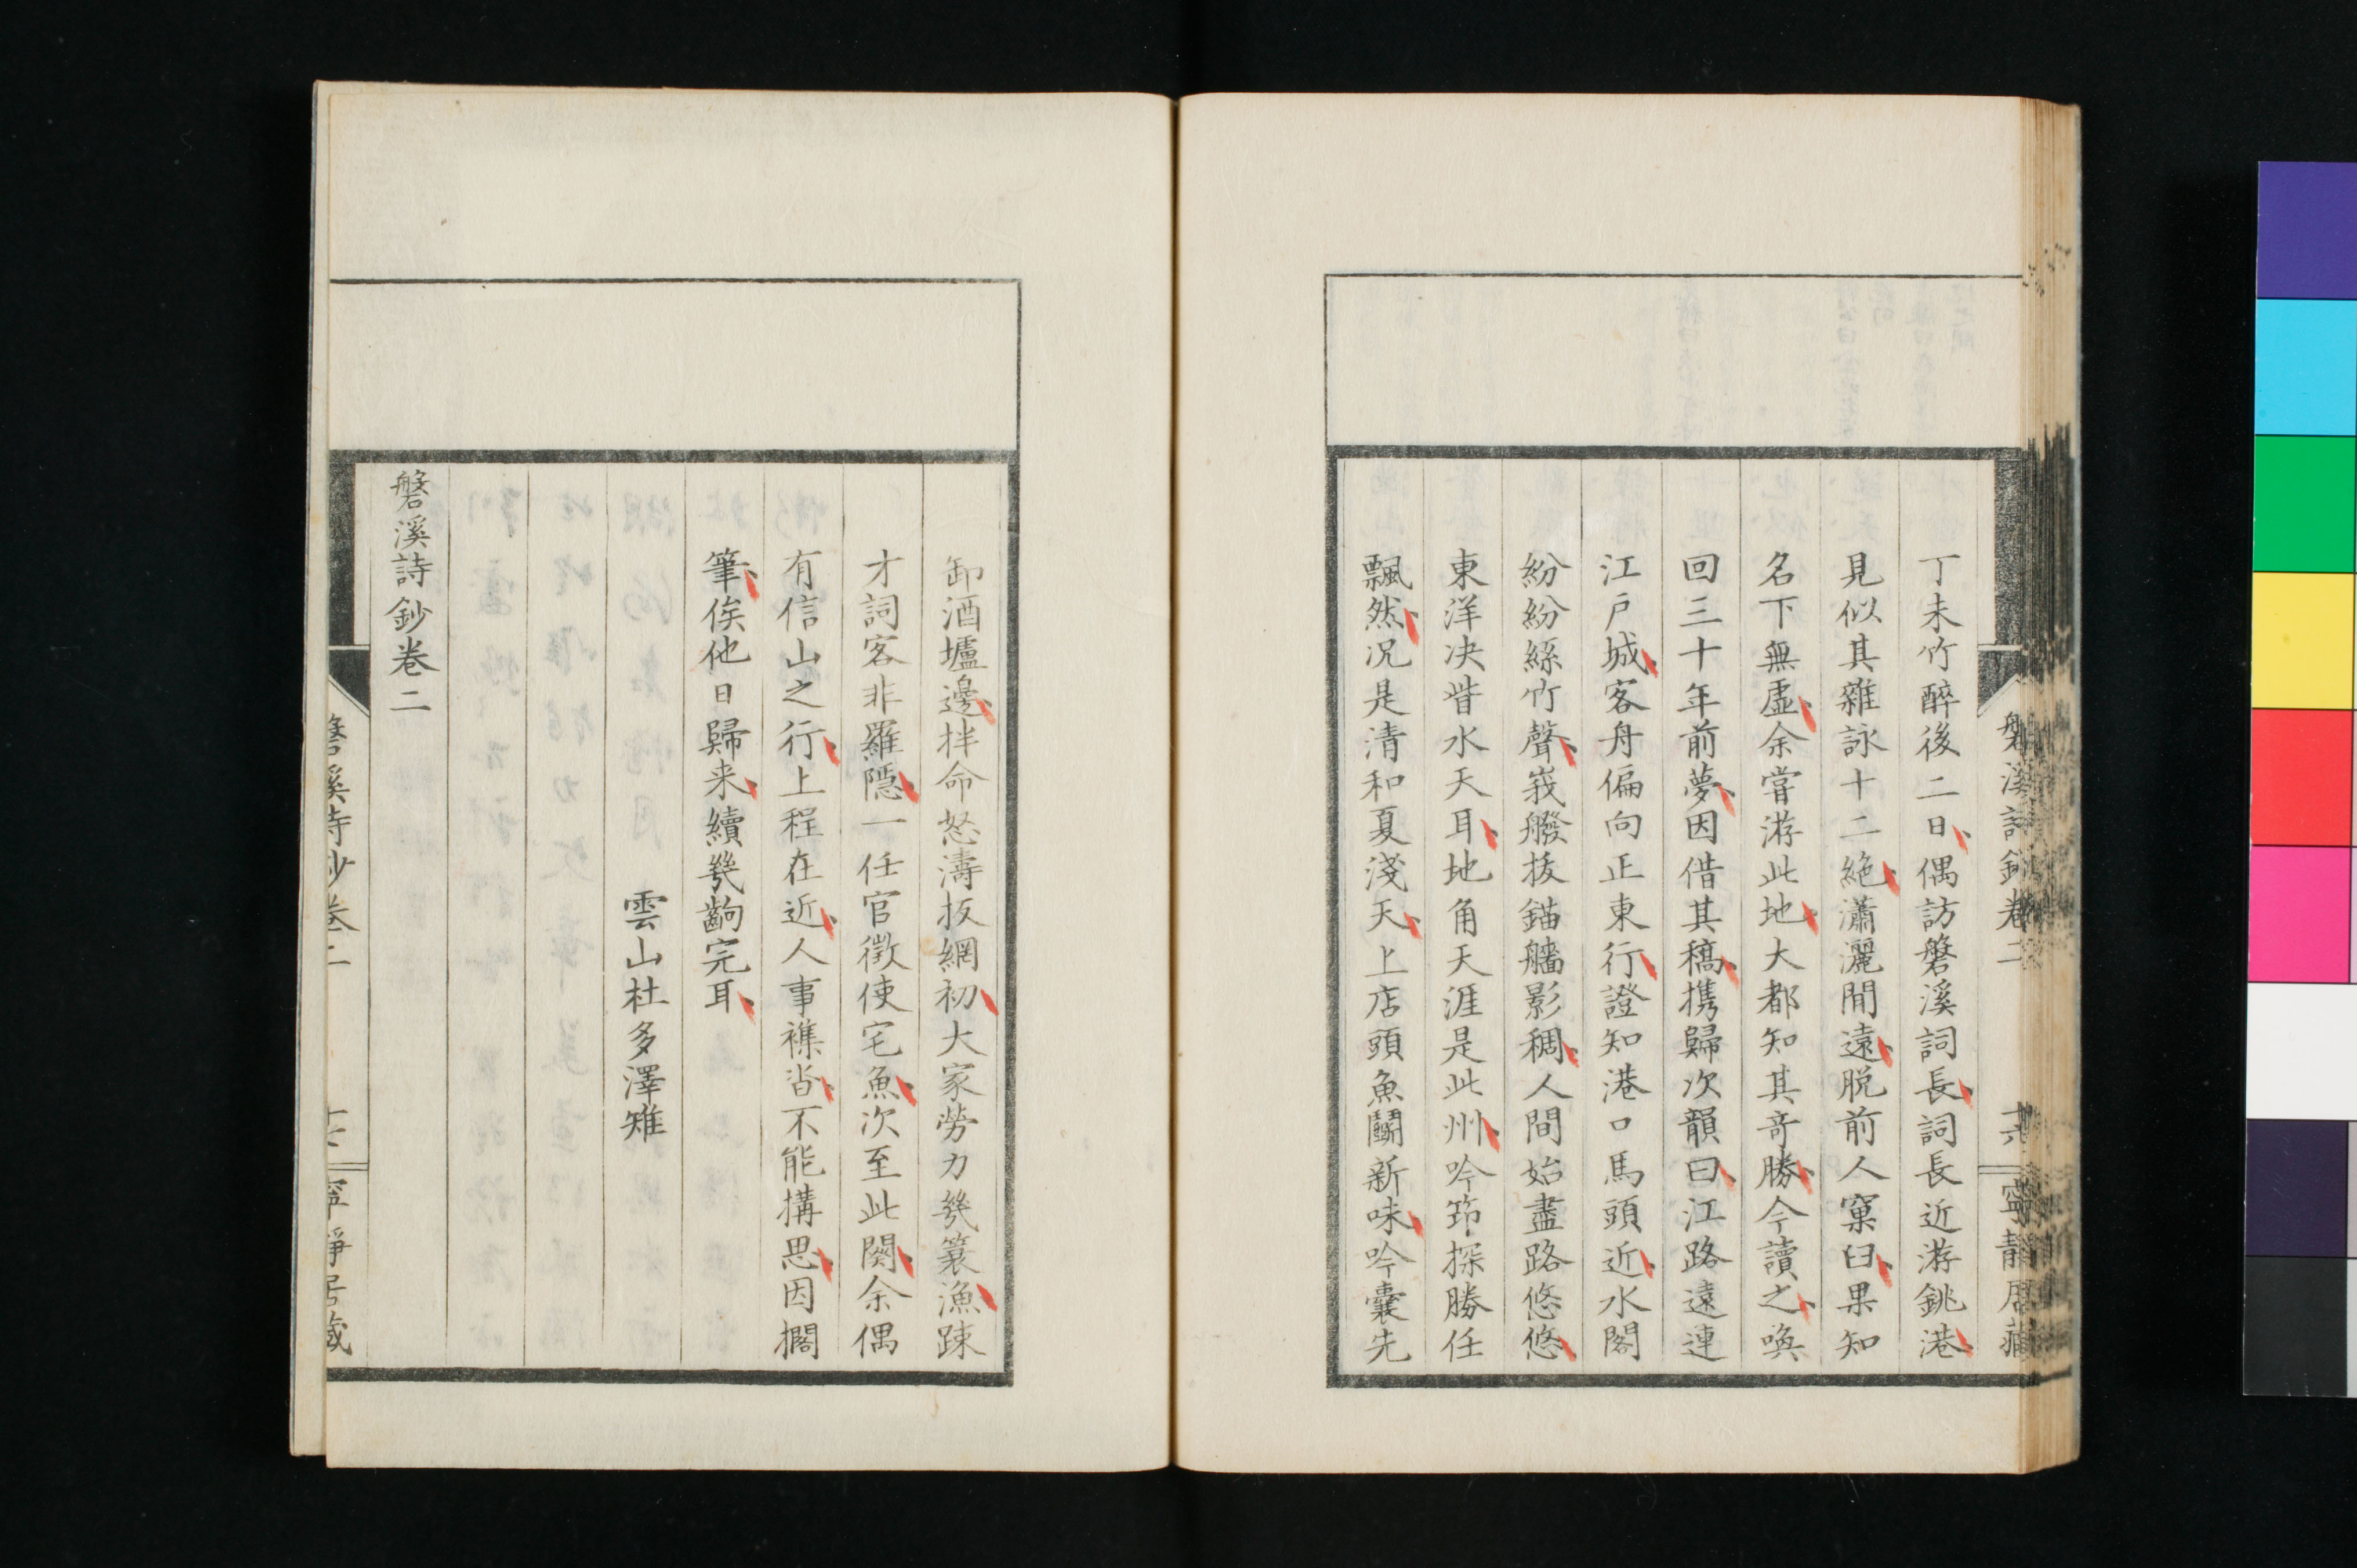 丁未竹醉後二日偶訪磐溪詞長詞長近游銚港
見似其雜詠十二絶瀟灑閒遠脱前人窠臼果知
名下無虛余嘗游此地大都知其奇勝今讀之喚
回三十年前夢因借其稿携歸次韻曰江路遠連
江戸城客舟偏向正東行證知港口馬頭近水閣
紛紛絲竹聲峩艬抜錨艢影稠人間始盡路悠悠
東洋决眥水天耳地角天涯是此州吟筇探勝任
飄然况是清和夏淺天上店頭魚鬭新味吟嚢先
卸酒壚邊拌命怒濤扳網初大家勞力幾簑漁踈
才詞客非羅隱一任官徵使宅魚次至此闋余偶
有信山之行上程在近人事襍沓不能搆思因擱
筆俟他日歸来續幾齣完耳
雲山杜多澤雉
磐溪詩鈔巻二
磐溪詩鈔巻二
十六
寧靜居藏
磐溪詩鈔巻二
寧靜居藏